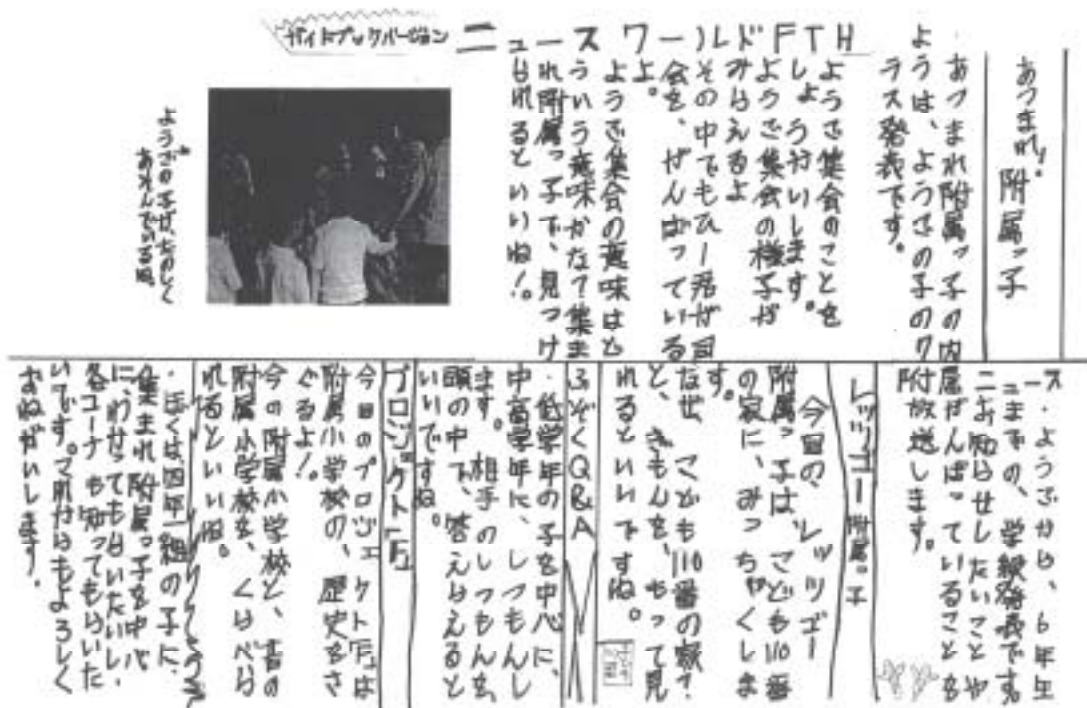 ニュースワールドFTH
ガイドブックバージョン
あつまれ!附属っ子
・あつまれ附属っ子の内
ようは、ようごの子のク
ラス発表です。
ようご集会のことを
しょうかいします。
ようご集会の様子が
みらえるよ
その中でもひー君が司
会を、がんばっている
よ。
ようご集会の意味はど
ういう意味かな?集ま
れ附属っ子で、見つけ
られるといいね!。
ようごの子が、たのしく
あそんでいる風
・ようごから、6年生
までの、学級発表です。
お知らせしたいことや
がんばっていることを
放送します。
レッツゴー附属っ子
今日の、レッツゴー
附属っ子は、こども110番
の家に、みっちゃくしま
す。
なぜ、こども110番の家?
と、ぎもんを、もって見
れるといいですね。
ふぞくQ&A
・低学年の子を中心に、
中高学年に、しつもんし
ます。相手のしつもんを、
頭の中で、答えらえると
いいですね。
プロジェクト「F」
今日のプロジェクト「F」は
附属小学校の、歴史をさ
ぐるよ!。
今の附属小学校と、昔の
附属小学校を、くらべら
れるといいね。
・ぼくは四年一組の子に、
集まれ附属っ子を中心
に、わかってもらいたいし、
各コーナーも知ってもらいた
いです。
おねがいします。